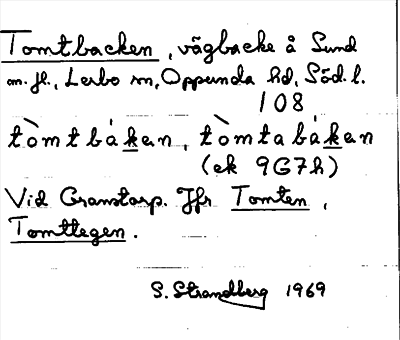 Tomtbacken, vägbacke å Sund
m. fl., Lerbo sn, Oppunda hd, Söd. l.
108
tòmtbákan, tòmtabákan
(ek 9G7h)
Vid Granstorp. Jfr Tomten,
Tomttegen.
S. Strandberg 1969